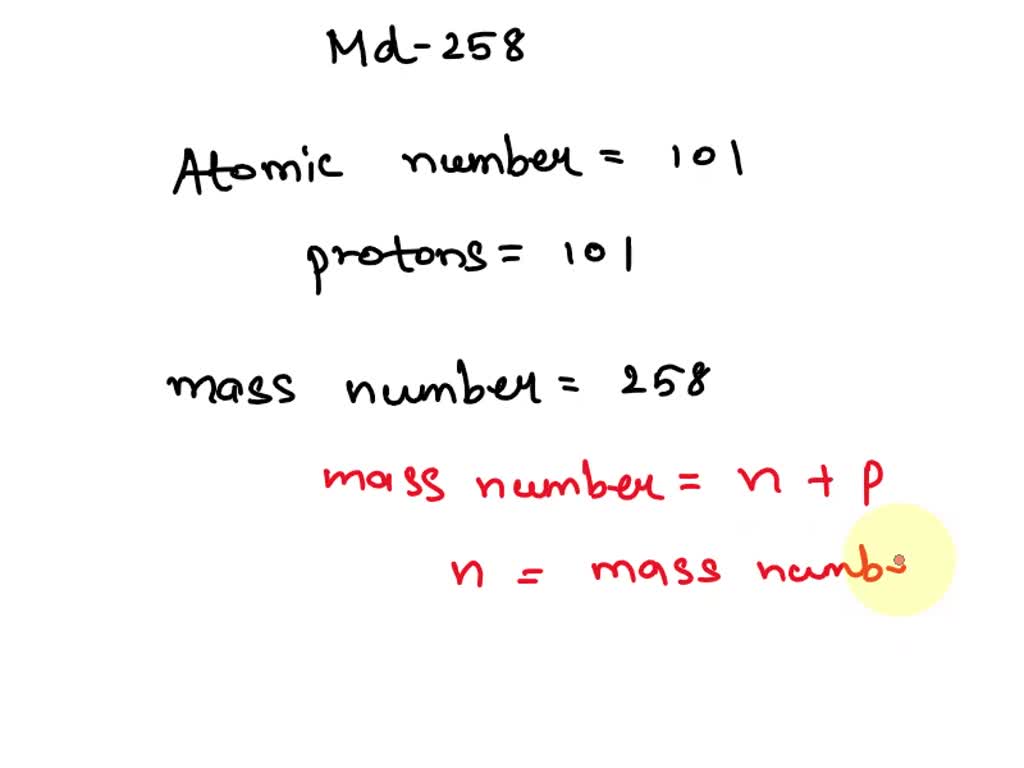 Md-258
Atomic number = 101
protons = 101
mass number = 258
mass number = n + p
n = mass numbe